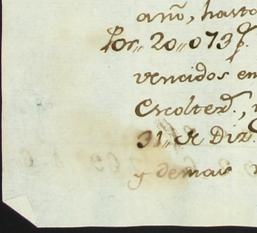 año, hasta
Por,, 20,,073 f.
vencidos en
Escolter.,
31,, de Diz.
y demas